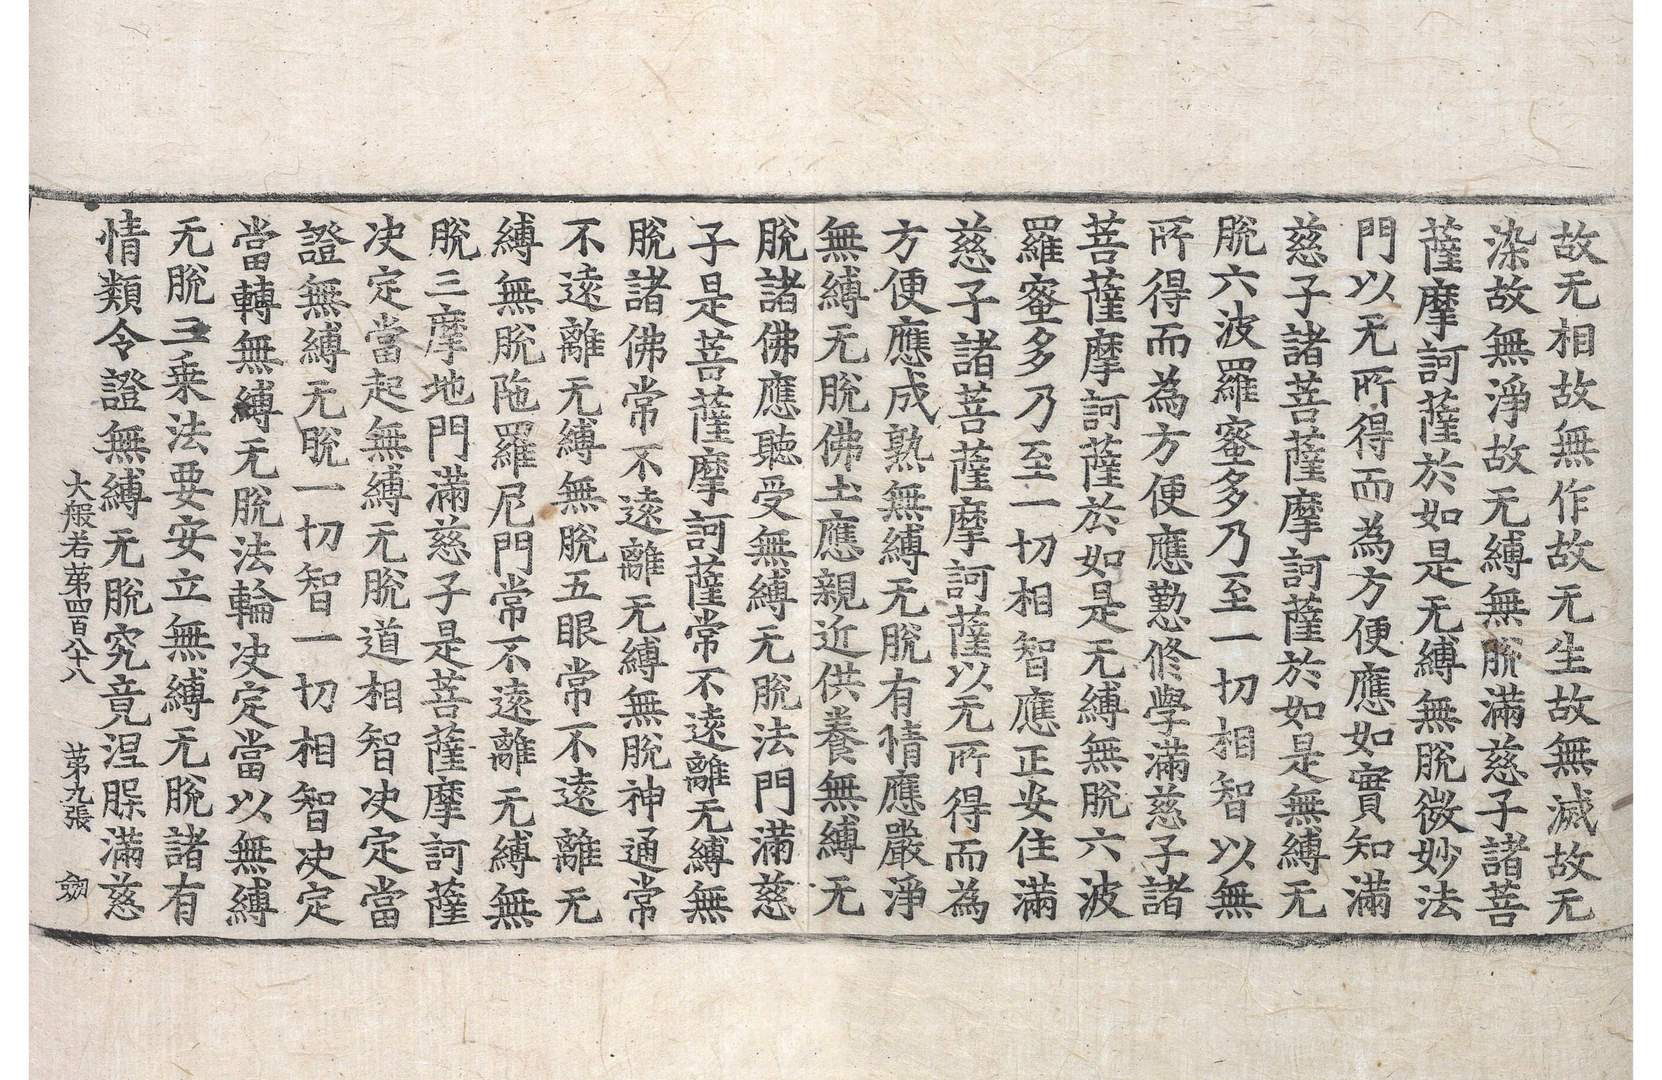 故无相故無作故无生故無滅故无
染故無淨故无縛無脫滿慈子諸菩
薩摩訶薩於如是无縛無脫微妙法
門以无所得而為方便應如實知滿
慈子諸菩薩摩訶薩於如是無縛无
脫六波羅蜜多乃至一切相智以無
所得而為方便應勤修學滿慈子諸
菩薩摩訶薩於如是无縛無脫六波
羅蜜多乃至一切相智應正安住滿
慈子諸菩薩摩訶薩以无所得而為
方便應成熟無縛无脫有情應嚴淨
無縛无脫佛土應親近供養無縛无
脫諸佛應聽受無縛无脫法門滿慈
子是菩薩摩訶薩常不遠離无縛無
脫諸佛常不遠離无縛無脫神通常
不遠離无縛無脫五眼常不遠離无
縛無脫陁羅尼門常不遠離无縛無
脫三摩地門滿慈子是菩薩摩訶薩
決定當起無縛无脫道相智決定當
證無縛无脫一切智一切相智決定
當轉無縛无脫法輪決定當以無縛
无脫三乘法要安立無縛无脫諸有
情類令證無縛无脫究竟涅槃滿慈
大般若第四百八十八 第九張 劒